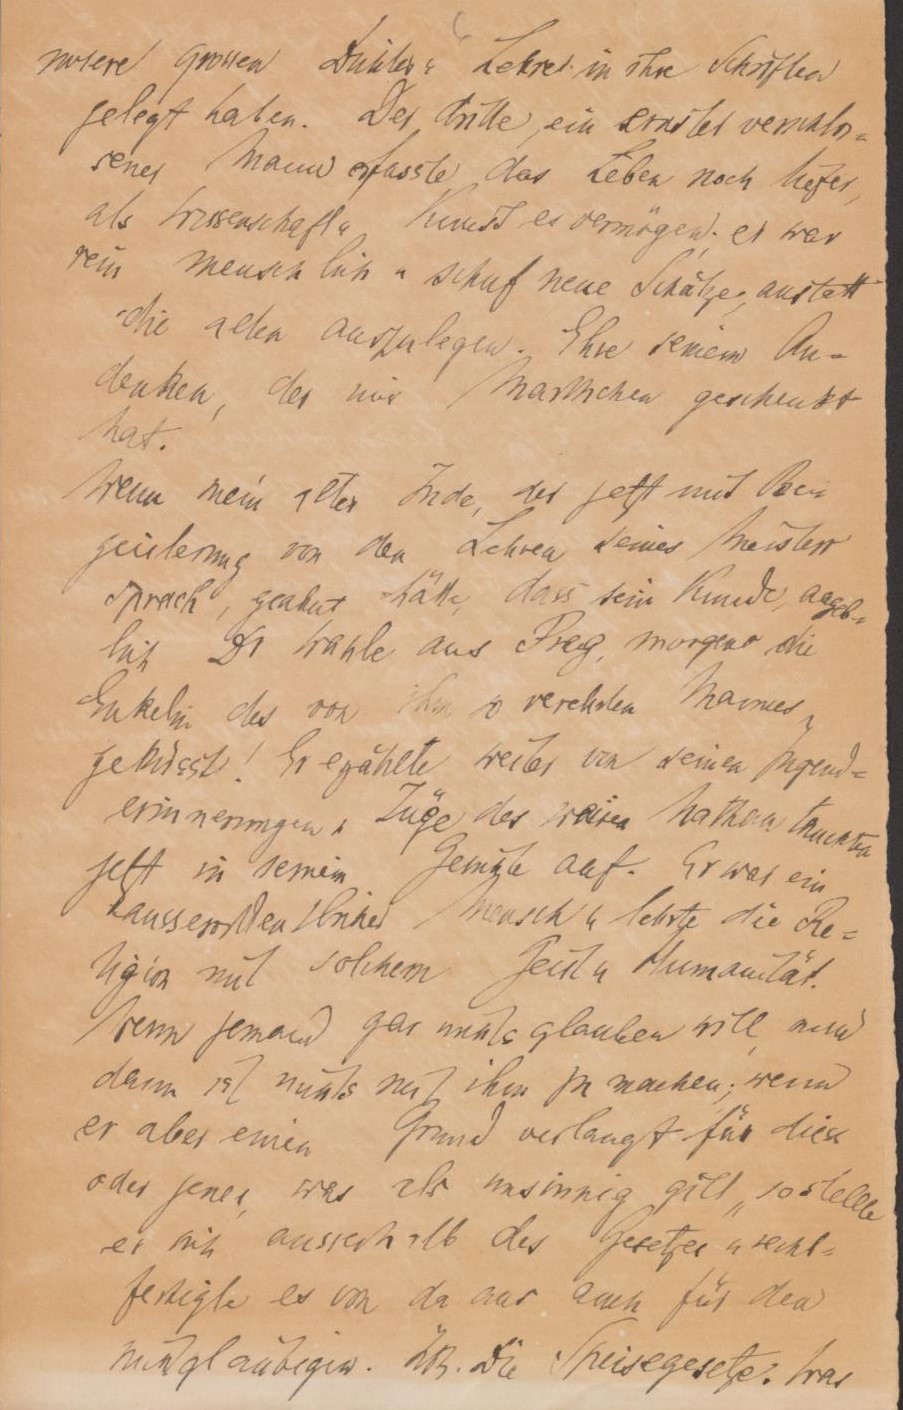 unsere grossen Dichter u Lehrer in ihre Schriften
gelegt haben. Der dritte, ein ernster verschlos=
sener Mann erfasste das Leben noch tiefer,
als Wissenschaft u Kunst es vermögen; er war
rein menschlich u schuf neue Schätze, anstatt
die alten auszulegen. Ehre seinem An=
denken, der mir geschenkt
hat.
Wenn mein alter Jude, der jetzt mit Be=
geisterung von den Lehren seines Meisters
sprach, geahnt hätte, dass sein Kunde, angeb=
lich Dr aus Prag, morgens die
Enkelin des von ihm so verehrten Mannes
geküsst! Er erzählte weiter von seinen Jugend=
erinnerungen, Züge des weisen Nathan tauchten
jetzt in seinem Gemüte auf. Er war ein
ausserordentlicher Mensch u lehrte die Re=
ligion mit solchem Geist u Humanität.
Wenn jemand gar nichts glauben will, nun
dann ist nichts mit ihm zu machen; wenn
er aber einen Grund verlangt für dies
oder jenes, was als unsinnig gilt, so stellte
er sich ausserhalb des Gesetzes u recht=
fertigte es von da aus auch für den
nichtgläubigen. Zb. Die Speisegesetze. Was